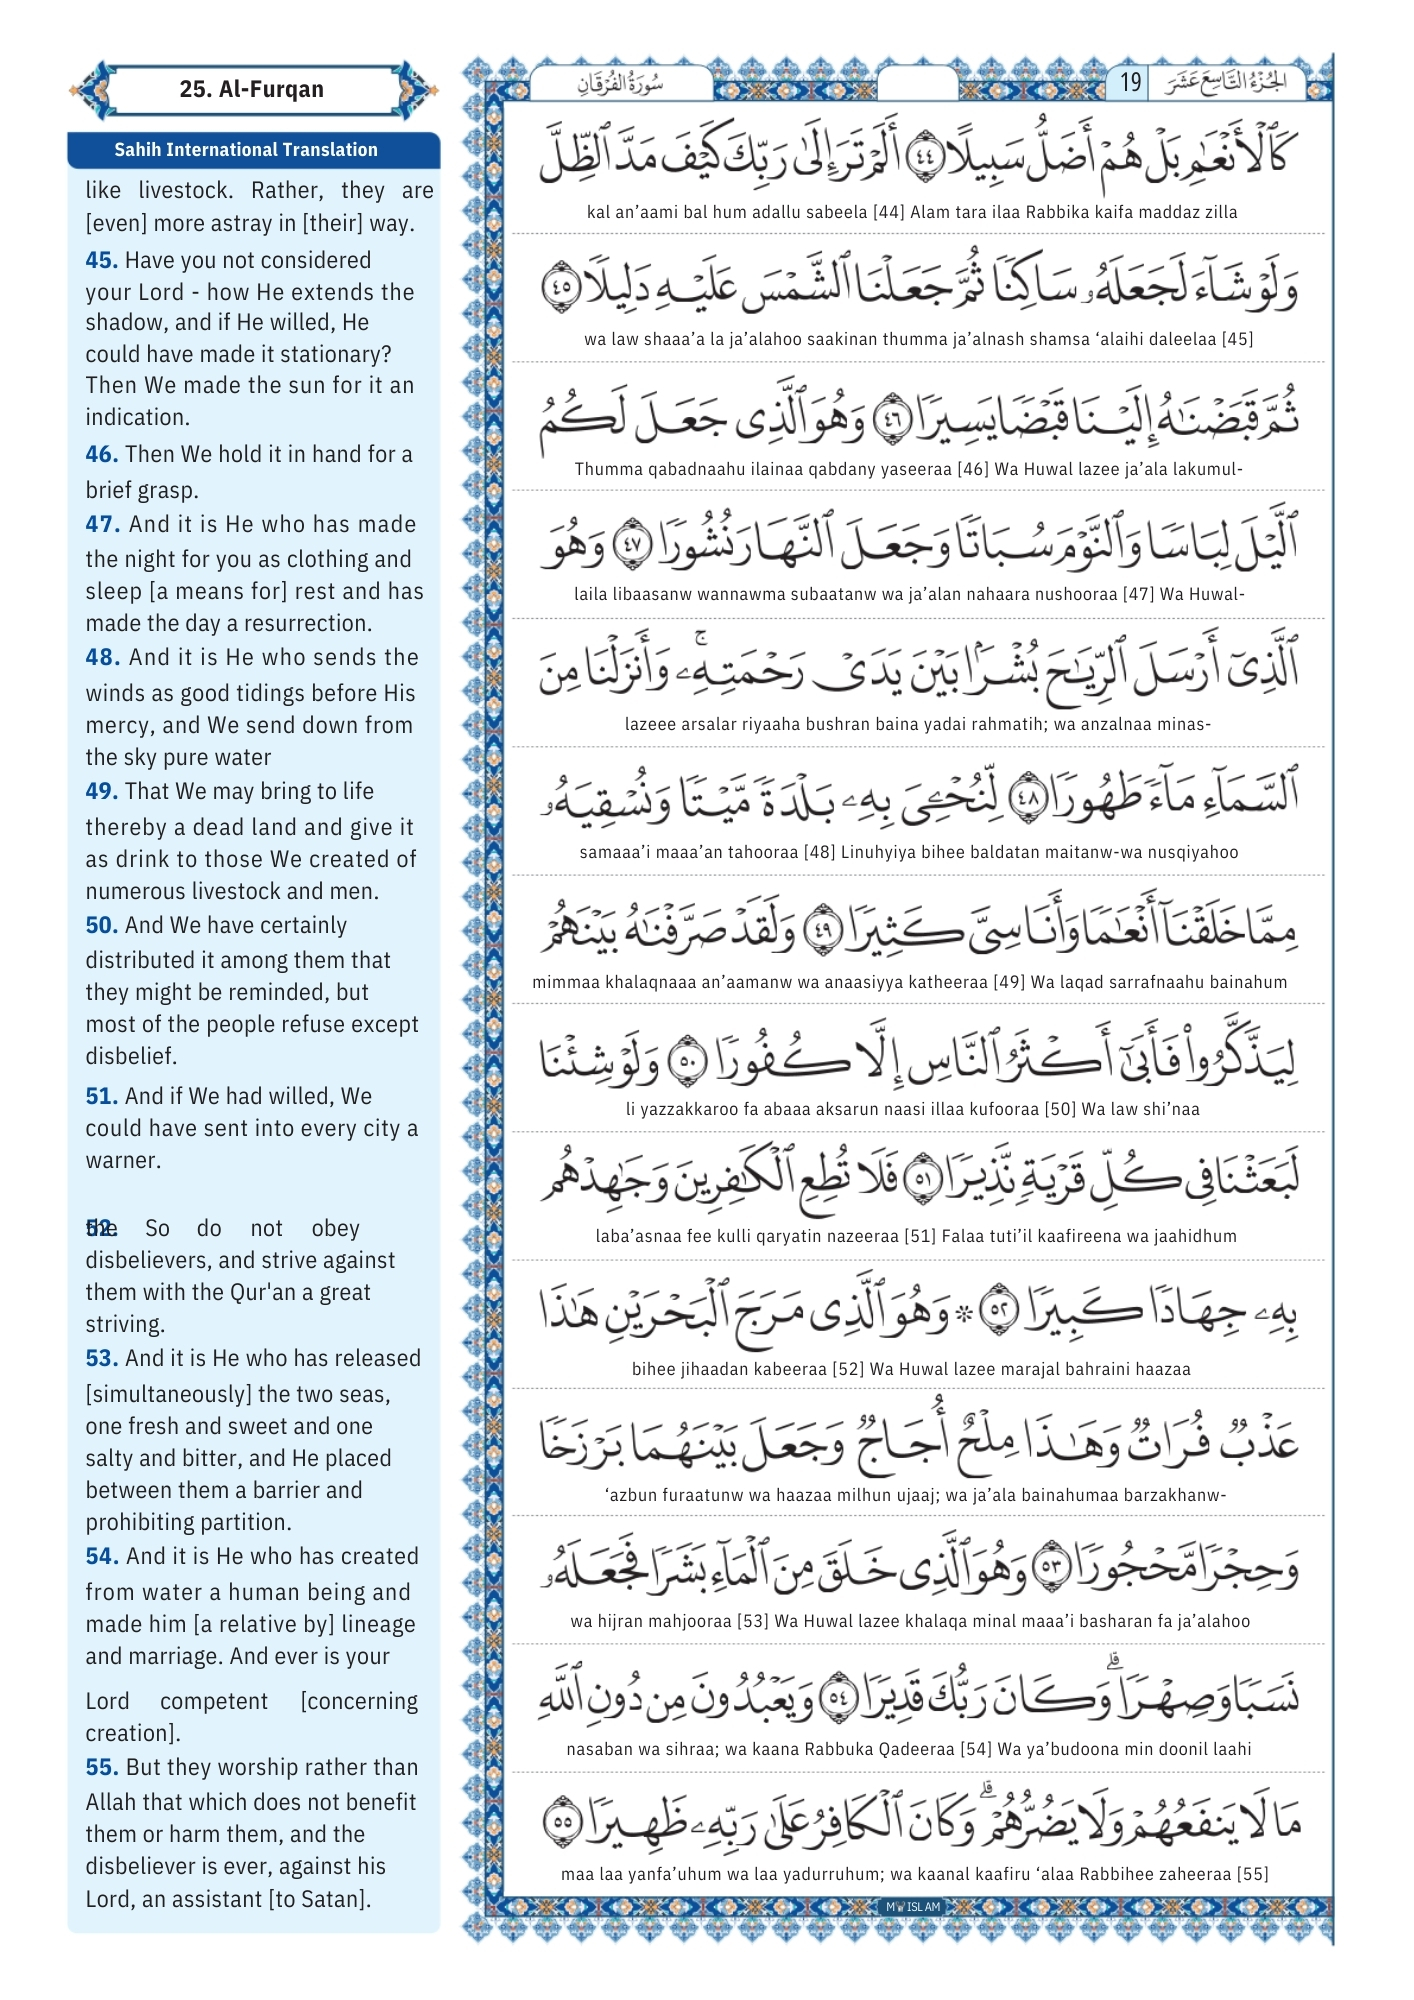 25. Al-Furqan
Sahih International Translation
like livestock. Rather, they are
[even] more astray in [their] way.
45. Have you not considered
your Lord - how He extends the
shadow, and if He willed, He
could have made it stationary?
Then We made the sun for it an
indication.
46. Then We hold it in hand for a
brief grasp.
47. And it is He who has made
the night for you as clothing and
sleep [a means for] rest and has
made the day a resurrection.
48. And it is He who sends the
winds as good tidings before His
mercy, and We send down from
the sky pure water
49. That We may bring to life
thereby a dead land and give it
as drink to those We created of
numerous livestock and men.
50. And We have certainly
distributed it among them that
they might be reminded, but
most of the people refuse except
disbelief.
51. And if We had willed, We
could have sent into every city a
warner.
52. the So do not obey
disbelievers, and strive against
them with the Qur'an a great
striving.
53. And it is He who has released
[simultaneously] the two seas,
one fresh and sweet and one
salty and bitter, and He placed
between them a barrier and
prohibiting partition.
54. And it is He who has created
from water a human being and
made him [a relative by] lineage
and marriage. And ever is your
Lord competent [concerning
creation].
55. But they worship rather than
Allah that which does not benefit
them or harm them, and the
disbeliever is ever, against his
Lord, an assistant [to Satan].
سُورَةُ الفُرْقَانِ
19 الجُزْءُ التَّاسِعَ عَشَرَ
كَٱلْأَنْعَـٰمِ بَلْ هُمْ أَضَلُّ سَبِيلًا ٤٤ أَلَمْ تَرَ إِلَىٰ رَبِّكَ كَيْفَ مَدَّ ٱلظِّلَّ
kal an’aami bal hum adallu sabeela [44] Alam tara ilaa Rabbika kaifa maddaz zilla
وَلَوْ شَآءَ لَجَعَلَهُۥ سَاكِنًا ثُمَّ جَعَلْنَا ٱلشَّمْسَ عَلَيْهِ دَلِيلًا ٤٥
wa law shaaa’a la ja’alahoo saakinan thumma ja’alnash shamsa ‘alaihi daleelaa [45]
ثُمَّ قَبَضْنَـٰهُ إِلَيْنَا قَبْضًا يَسِيرًا ٤٦ وَهُوَ ٱلَّذِى جَعَلَ لَكُمُ
Thumma qabadnaahu ilainaa qabdany yaseeraa [46] Wa Huwal lazee ja’ala lakumul-
ٱلَّيْلَ لِبَاسًا وَٱلنَّوْمَ سُبَاتًا وَجَعَلَ ٱلنَّهَارَ نُشُورًا ٤٧ وَهُوَ
laila libaasanw wannawma subaatanw wa ja’alan nahaara nushooraa [47] Wa Huwal-
ٱلَّذِىٓ أَرْسَلَ ٱلرِّيَـٰحَ بُشْرًۢا بَيْنَ يَدَىْ رَحْمَتِهِۦ ۚ وَأَنزَلْنَا مِنَ
lazeee arsalar riyaaha bushran baina yadai rahmatih; wa anzalnaa minas-
ٱلسَّمَآءِ مَآءً طَهُورًا ٤٨ لِّنُحْـِۧىَ بِهِۦ بَلْدَةً مَّيْتًا وَنُسْقِيَهُۥ
samaaa’i maaa’an tahooraa [48] Linuhyiya bihee baldatan maitanw-wa nusqiyahoo
مِمَّا خَلَقْنَآ أَنْعَـٰمًا وَأَنَاسِىَّ كَثِيرًا ٤٩ وَلَقَدْ صَرَّفْنَـٰهُ بَيْنَهُمْ
mimmaa khalaqnaaa an’aamanw wa anaasiyya katheeraa [49] Wa laqad sarrafnaahu bainahum
لِيَذَّكَّرُوا۟ فَأَبَىٰٓ أَكْثَرُ ٱلنَّاسِ إِلَّا كُفُورًا ٥٠ وَلَوْ شِئْنَا
li yazzakkaroo fa abaaa aksarun naasi illaa kufooraa [50] Wa law shi’naa
لَبَعَثْنَا فِى كُلِّ قَرْيَةٍ نَّذِيرًا ٥١ فَلَا تُطِعِ ٱلْكَـٰفِرِينَ وَجَـٰهِدْهُم
laba’asnaa fee kulli qaryatin nazeeraa [51] Falaa tuti’il kaafireena wa jaahidhum
بِهِۦ جِهَادًا كَبِيرًا ٥٢ * وَهُوَ ٱلَّذِى مَرَجَ ٱلْبَحْرَيْنِ هَـٰذَا
bihee jihaadan kabeeraa [52] Wa Huwal lazee marajal bahraini haazaa
عَذْبٌ فُرَاتٌ وَهَـٰذَا مِلْحٌ أُجَاجٌ وَجَعَلَ بَيْنَهُمَا بَرْزَخًا
‘azbun furaatunw wa haazaa milhun ujaaj; wa ja’ala bainahumaa barzakhanw-
وَحِجْرًا مَّحْجُورًا ٥٣ وَهُوَ ٱلَّذِى خَلَقَ مِنَ ٱلْمَآءِ بَشَرًا فَجَعَلَهُۥ
wa hijran mahjooraa [53] Wa Huwal lazee khalaqa minal maaa’i basharan fa ja’alahoo
نَسَبًا وَصِهْرًا ۗ وَكَانَ رَبُّكَ قَدِيرًا ٥٤ وَيَعْبُدُونَ مِن دُونِ ٱللَّهِ
nasaban wa sihraa; wa kaana Rabbuka Qadeeraa [54] Wa ya’budoona min doonil laahi
مَا لَا يَنفَعُهُمْ وَلَا يَضُرُّهُمْ ۗ وَكَانَ ٱلْكَافِرُ عَلَىٰ رَبِّهِۦ ظَهِيرًا ٥٥
maa laa yanfa’uhum wa laa yadurruhum; wa kaanal kaafiru ‘alaa Rabbihee zaheeraa [55]
MY ISLAM